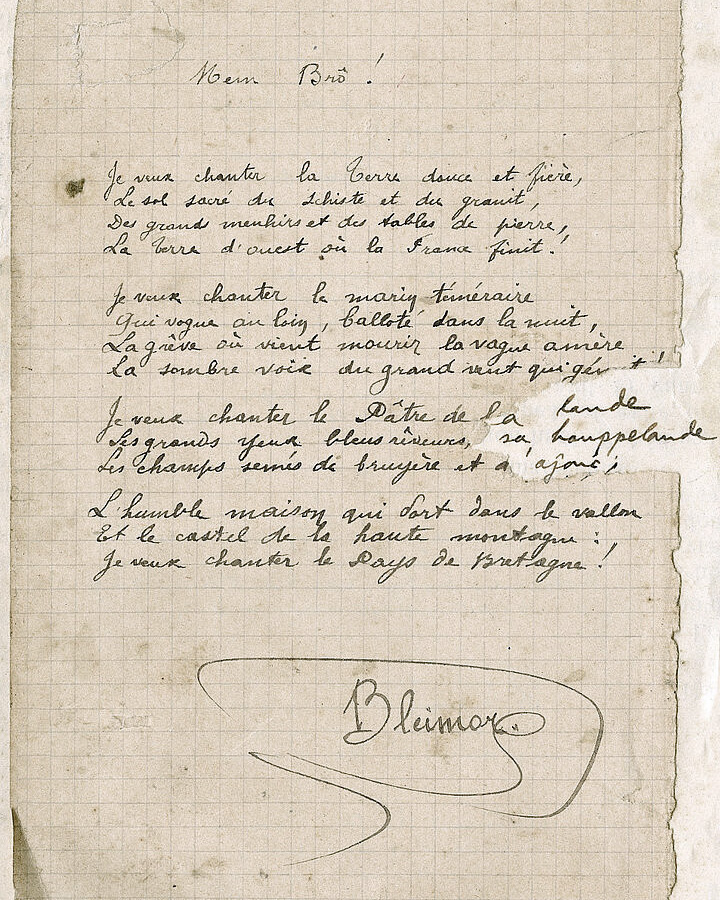 Mem Brô !
Je veux chanter la Terre douce et fière,
Le sol sacré du schiste et du granit,
Des grands menhirs et des tables de pierre,
La Terre d'ouest où la France finit !
Je veux chanter le marin téméraire
Qui vogue au loin, balloté dans la nuit,
La grève où vient mourir la vague amère
La sombre voix du grand vent qui gémit !
Je veux chanter le Pâtre de la lande
Ses grands yeux bleus rêveurs, sa houppelande
Les champs semés de bruyère et d'ajonc ;
L'humble maison qui dort dans le vallon
Et le castel de la haute montagne :
Je veux chanter le Pays de Bretagne !
Bleimor.